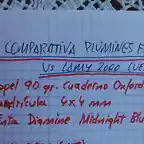 COMPARATIVA PLUMINES F
VS LAMY 2000 (UE
pel 90 gr. Cuaderno Oxford
adrícula 4x4 mm
inta Diamine Midnight Blu